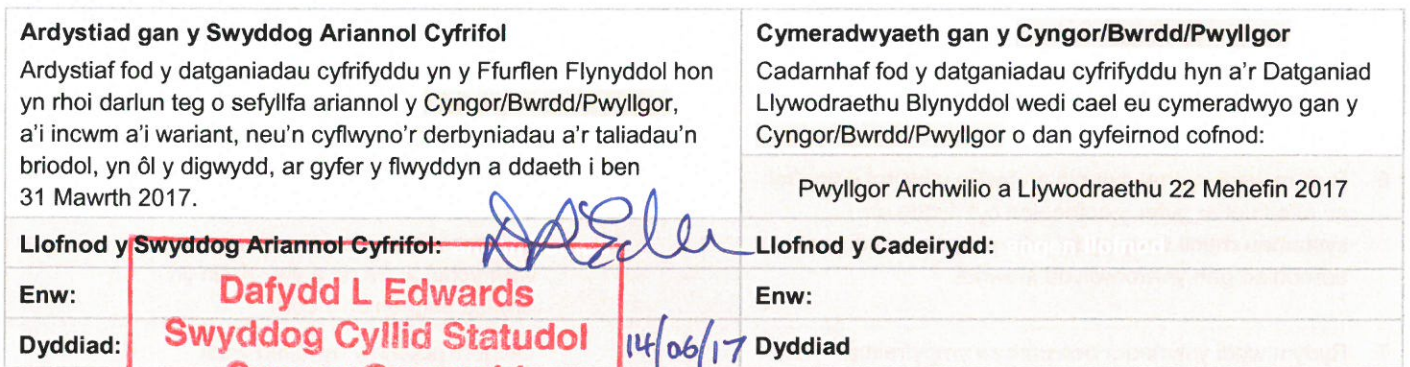 Ardystiad gan y Swyddog Ariannol Cyfrifol
Ardystiaf fod y datganiadau cyfrifyddu yn y Ffurflen Flynyddol hon
yn rhoi darlun teg o sefyllfa ariannol y Cyngor/Bwrdd/Pwyllgor,
a'i incwm a'i wariant, neu'n cyflwyno'r derbyniadau a'r taliadau'n
briodol, yn ôl y digwydd, ar gyfer y flwyddyn a ddaeth i ben
31 Mawrth 2017.
Llofnod y Swyddog Ariannol Cyfrifol:
Enw:
Dafydd L Edwards
Swyddog Cyllid Statudol
Dyddiad:
14/06/17
Cymeradwyaeth gan y Cyngor/Bwrdd/Pwyllgor
Cadarnhaf fod y datganiadau cyfrifyddu hyn a'r Datganiad
Llywodraethu Blynyddol wedi cael eu cymeradwyo gan y
Cyngor/Bwrdd/Pwyllgor o dan gyfeirnod cofnod:
Pwyllgor Archwilio a Llywodraethu 22 Mehefin 2017
Llofnod y Cadeirydd:
Enw:
Dyddiad